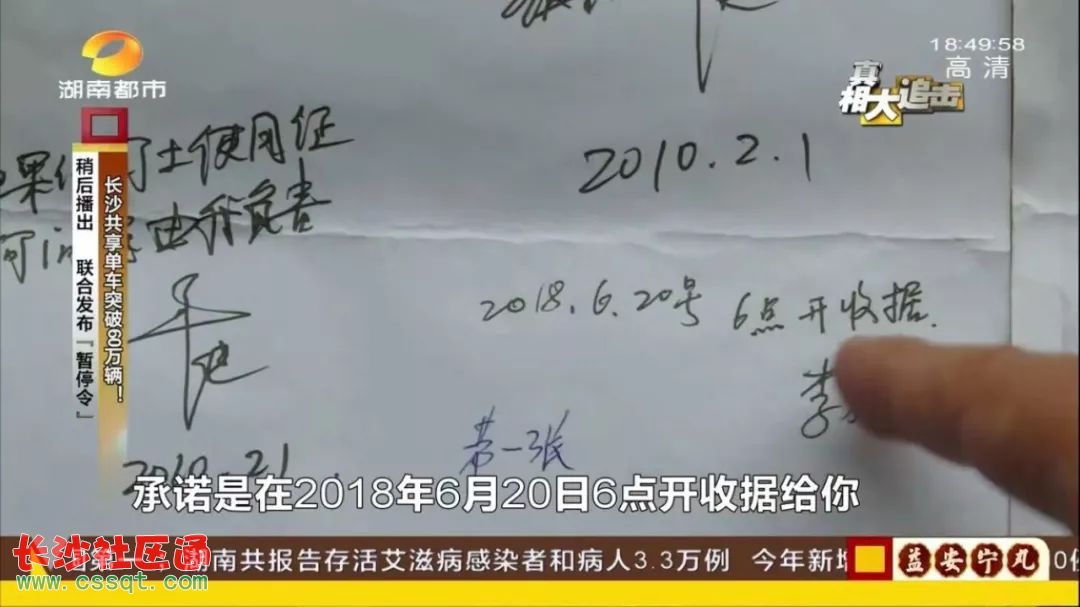 湖南都市
18:49:58
高清
真相大追击
土使用证
2010.2.1
由我负责
2018.6.20号 6点开收据.
李
第一张
长沙共享单车突破80万辆!
稍后播出 联合发布“暂停令”
承诺是在2018年6月20日6点开收据给你
湖南共报告存活艾滋病感染者和病人3.3万例 今年新增
益安宁丸
长沙社区通
www.cssqt.com